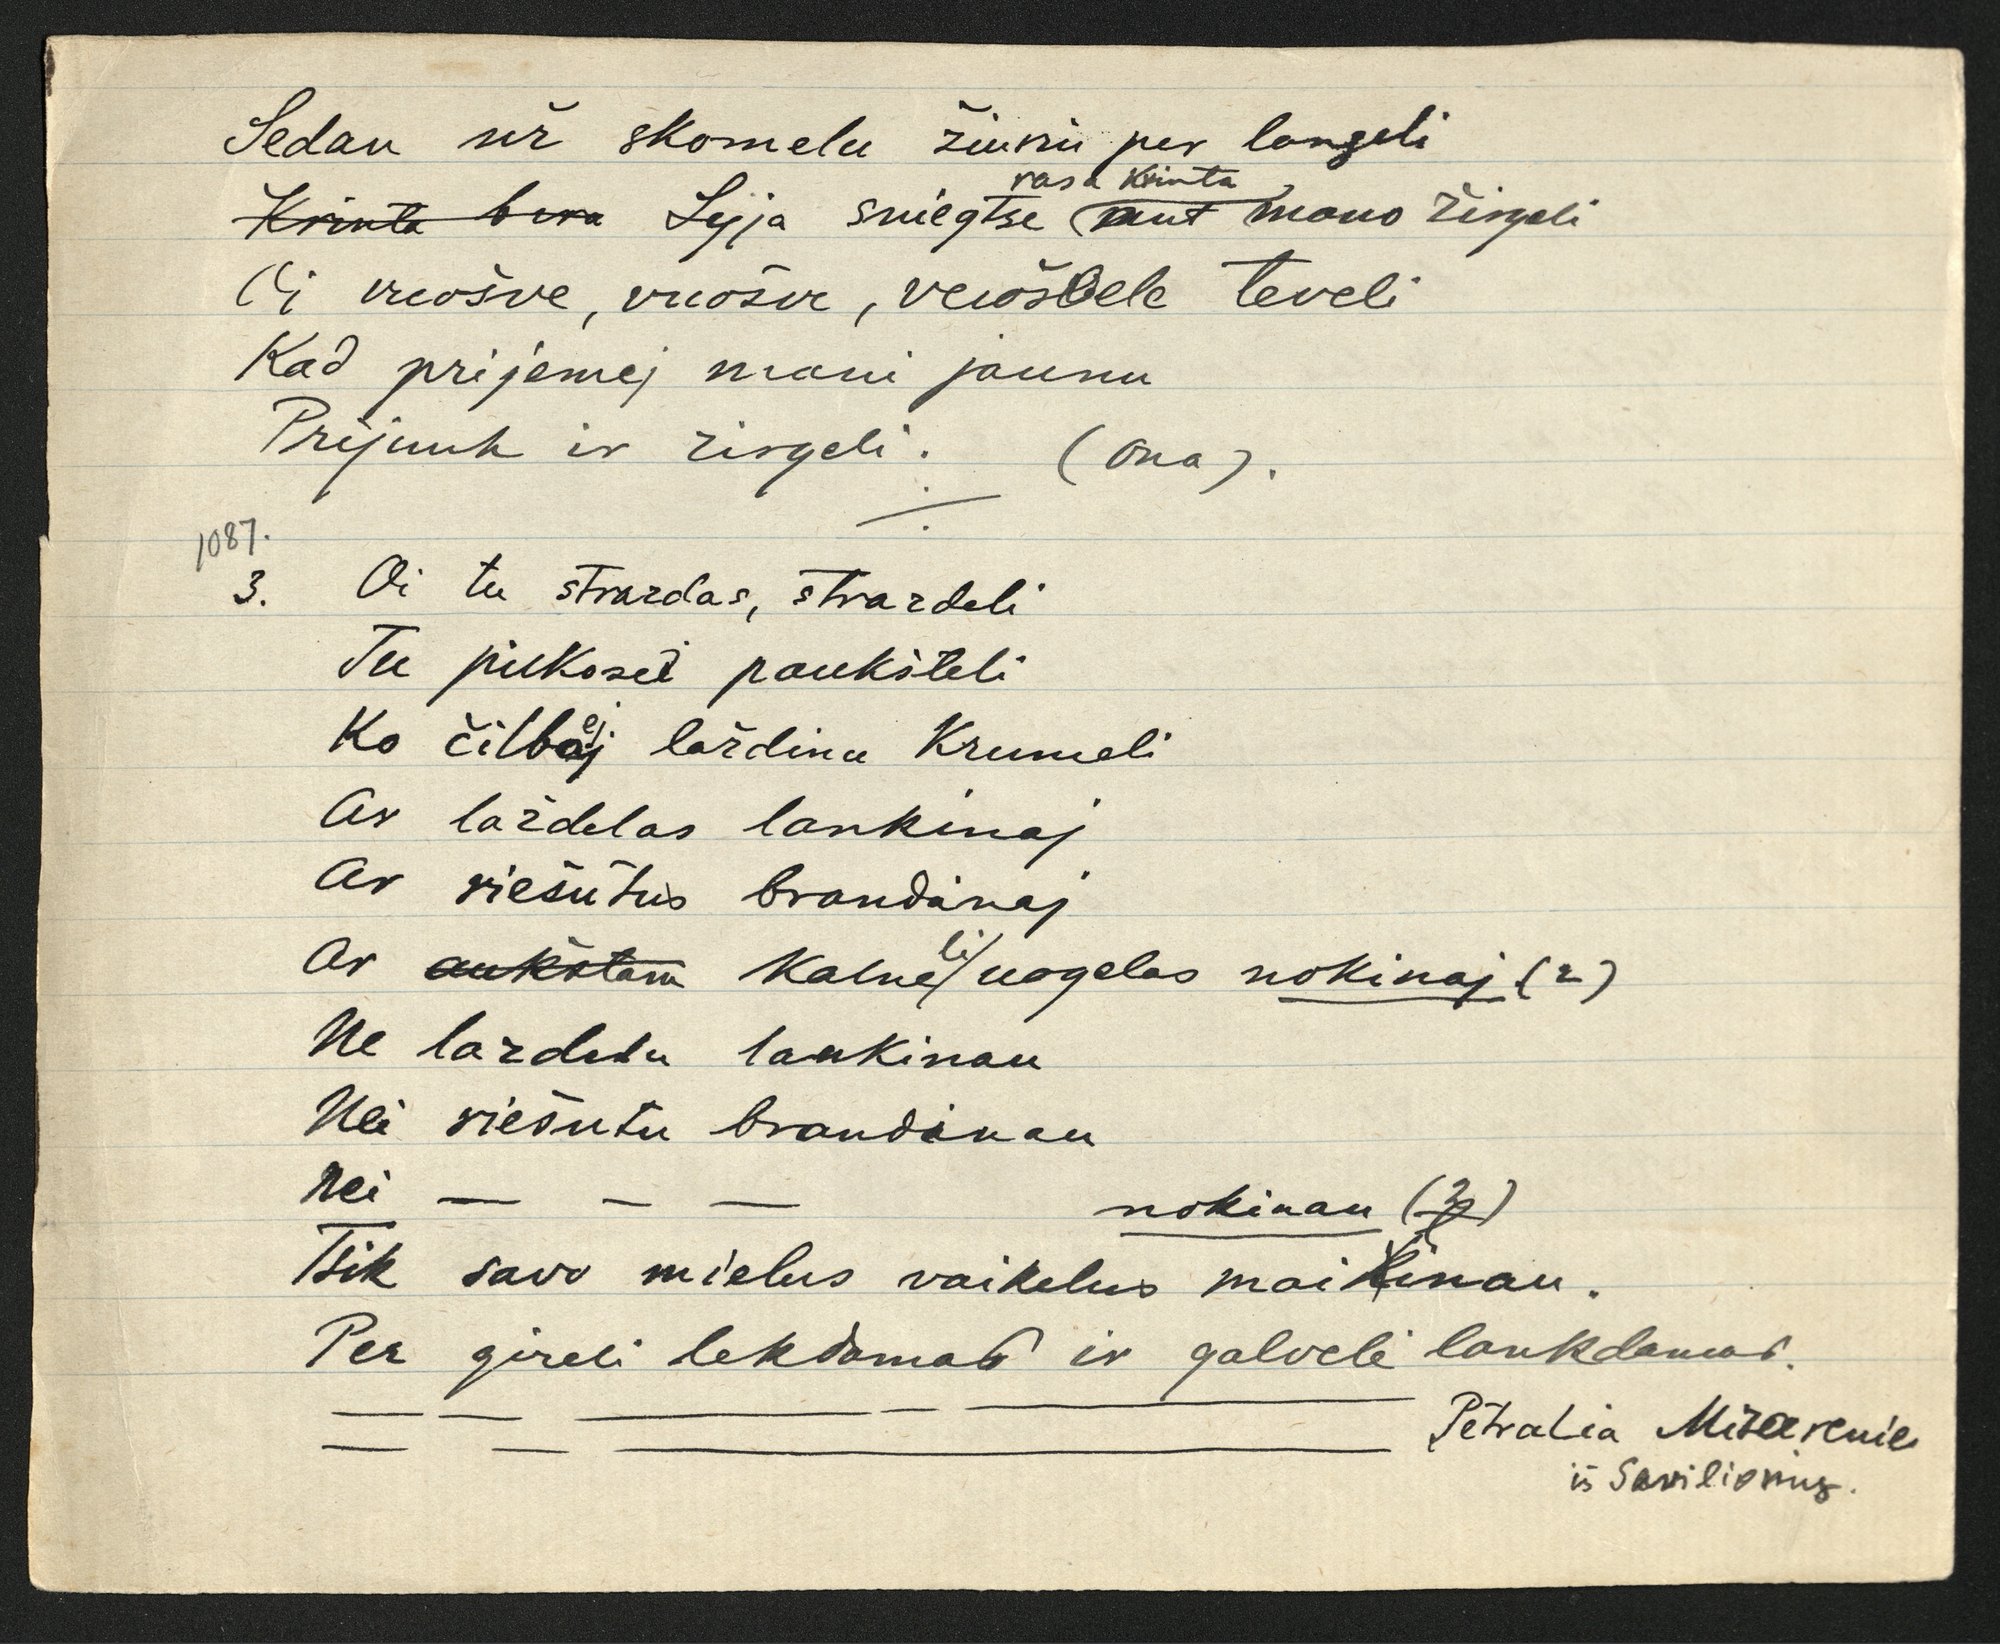 Sedau už skomelu žiuriu per langeli
rasa krinta
Krinta bera Lyja sniegtse ant mano žirgeli
Oi uuošve, uuošve, uuošvele teveli
Kad prijemej mani jaunu
Prijumk ir zirgeli. (Ona).
1087.
3. Oi tu strazdas, strazdeli
Tu pilkasei paukšteli
Ko čilbej lazdinu Krumeli
Ar lazdelas lankinaj
Ar riešutus brandinaj
Ar aukštam Kalneli uogelas nokinaj (2)
Ne lazdelu lankinau
Nei riešutu brandinau
Nei — — — nokinau (2)
Tsik savo mielus vaikelus maitinau.
Per gireli lekdamas ir galveli lankdamas.
Petralia
iš Savilioniu.